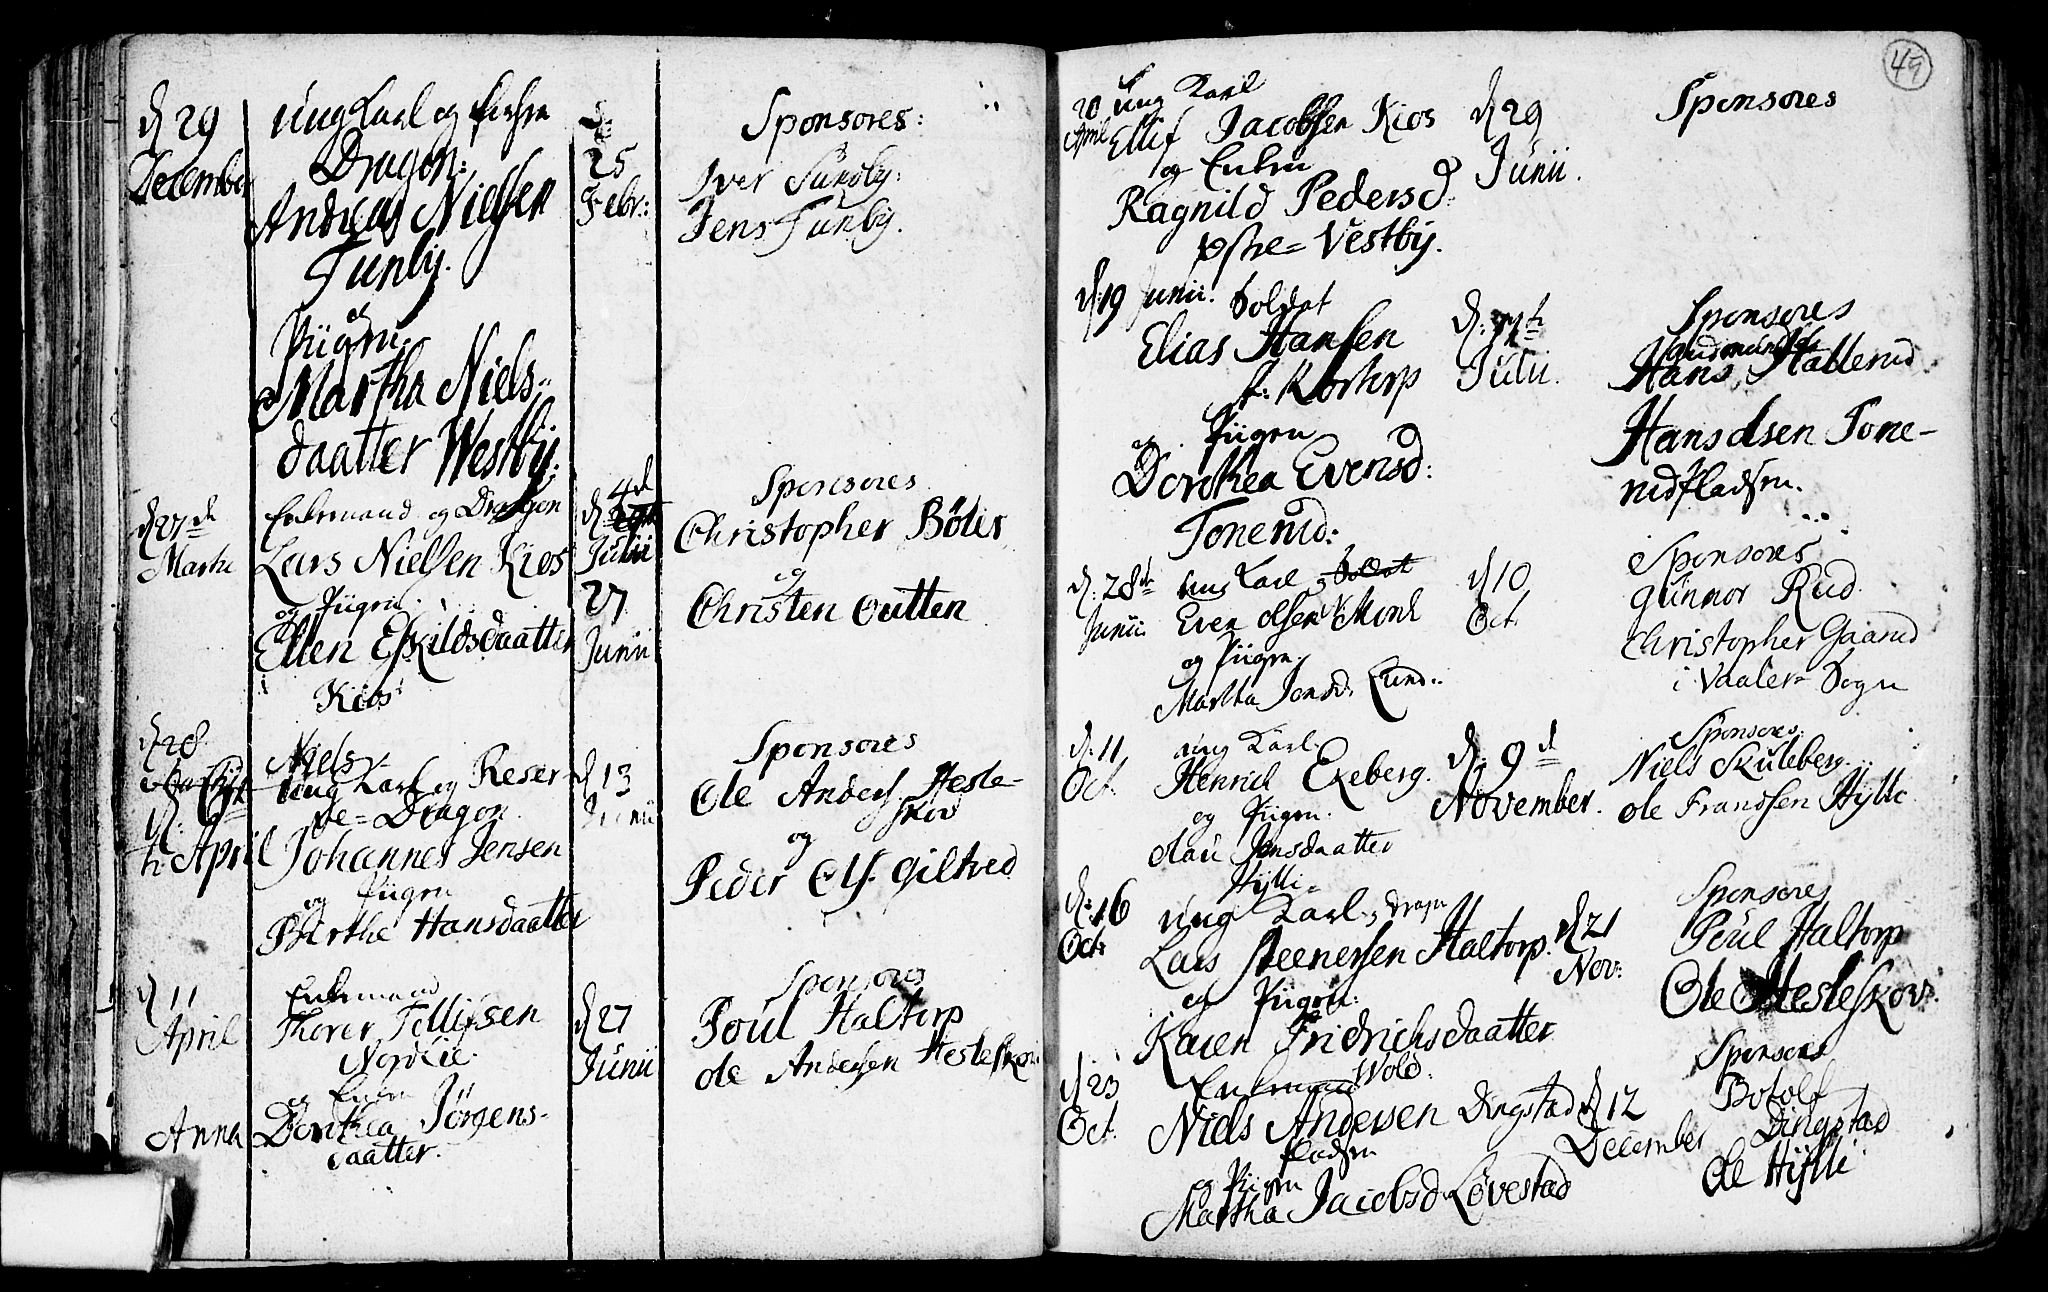 d 29
December
Ung Karl og
Dragon:
Andreas Nielsen
Tunby.
og
Piigen
Martha Niels-
daatter Westby:
d
25
Febr:
Sponsores:
Iver Sundby:
Jens Tunby.
d 27de
Martii
Enkemand og Dragon
Lars Nielsen Kios
og Piigen
Ellen Eskildsdaatter
Kios
4d
d
Julii
27
Junii
Sponsores
Christopher Böler
og
Christen Outten
d 28
d: 6te
April
Niels
Ung Karl og Reser-
ve=Dragon
Johannes Jensen
og Piigen
Birthe Hansdaatter
d 13
Junii
Sponsores
Ole Anders Hesle-
skov
og
Peder Ols. Giltved
d 11
April
Enkemand
Thorer Tollifsen
Nordlie.
og Enken
Anna Dorthea Jörgens-
daatter.
d 27
Junii
Sponsores
Poul Haltorp
Ole Andersen Hesleskov
49
20
April
Ung Karl
Ellif Jacobsen Kios
og Enken
Ragnild Pedersd
østre=Vestby.
d 29
Junii.
Sponsores
d: 19 Junii.
Soldat
Elias Hansen
Kortorp
og Piigen
Dorthea Evensd:
Tonerud:
d:
Julii.
Sponsores
Gudmundsen
Hans Hallerud
Hans Olsen Tone-
rudpladsen.
d: 28de
Junii
Ung Karl og Soldat
Even Olsen Monk
og Piigen
Martha Jensd. Lund:
d 10
Oct.
Sponsores
Gunnor Rud
Christopher Gaarud
i Vaaler Sogn
d: 11
Oct.
Ung Karl
Henrich Ekeberg.
og Piigen
Olau Jensdaatter
Hylli
d: 9d
November.
Sponsores.
Niels Skuleberg
Ole Frandsen Hylli
d: 16
Oct:
Ung Karl og Dragon
Lars Steenersen Haltorp.
og Piigen:
Karen Fridrichsdaatter
Wold.
d 21
Nov:
Sponsores
Poul Haltorp
Ole Hesleskov.
d 23
Oct.
Enkemand
Niels Andersen Dingstad
Pladsen
og Piigen
Martha Jacobsd Lövestad
d 12
December
Sponsores
Botolf
Dingstad
Ole Hylli